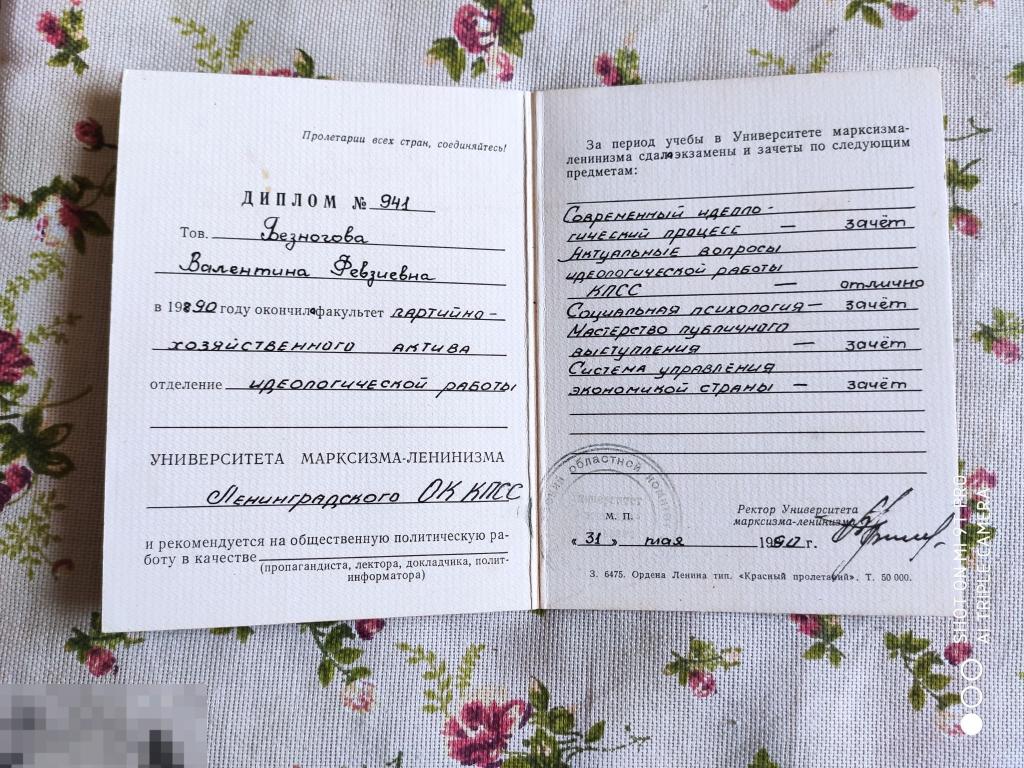 Пролетарии всех стран, соединяйтесь!
ДИПЛОМ № 941
Тов. Безногова
Валентина Февзиевна
в 1990 году окончила факультет партийно-
хозяйственного актива
отделение идеологической работы
УНИВЕРСИТЕТА МАРКСИЗМА-ЛЕНИНИЗМА
Ленинградского ОК КПСС
и рекомендуется на общественную политическую ра-
боту в качестве
(пропагандиста, лектора, докладчика, полит-
информатора)
За период учебы в Университете марксизма-
ленинизма сдала экзамены и зачеты по следующим
предметам:
Современный идеоло-
гический процесс — зачёт
Актуальные вопросы
идеологической работы
КПСС — отлично
Социальная психология — зачёт
Мастерство публичного
выступления — зачёт
Система управления
экономикой страны — зачёт
областной комитет
университет
М. П.
Ректор Университета
марксизма-ленинизма
« 31 » мая 1990 г.
З. 6475. Ордена Ленина тип. «Красный пролетарий». Т. 50 000.
SHOT ON MI 9T PRO
AI TRIPLE CAMERA